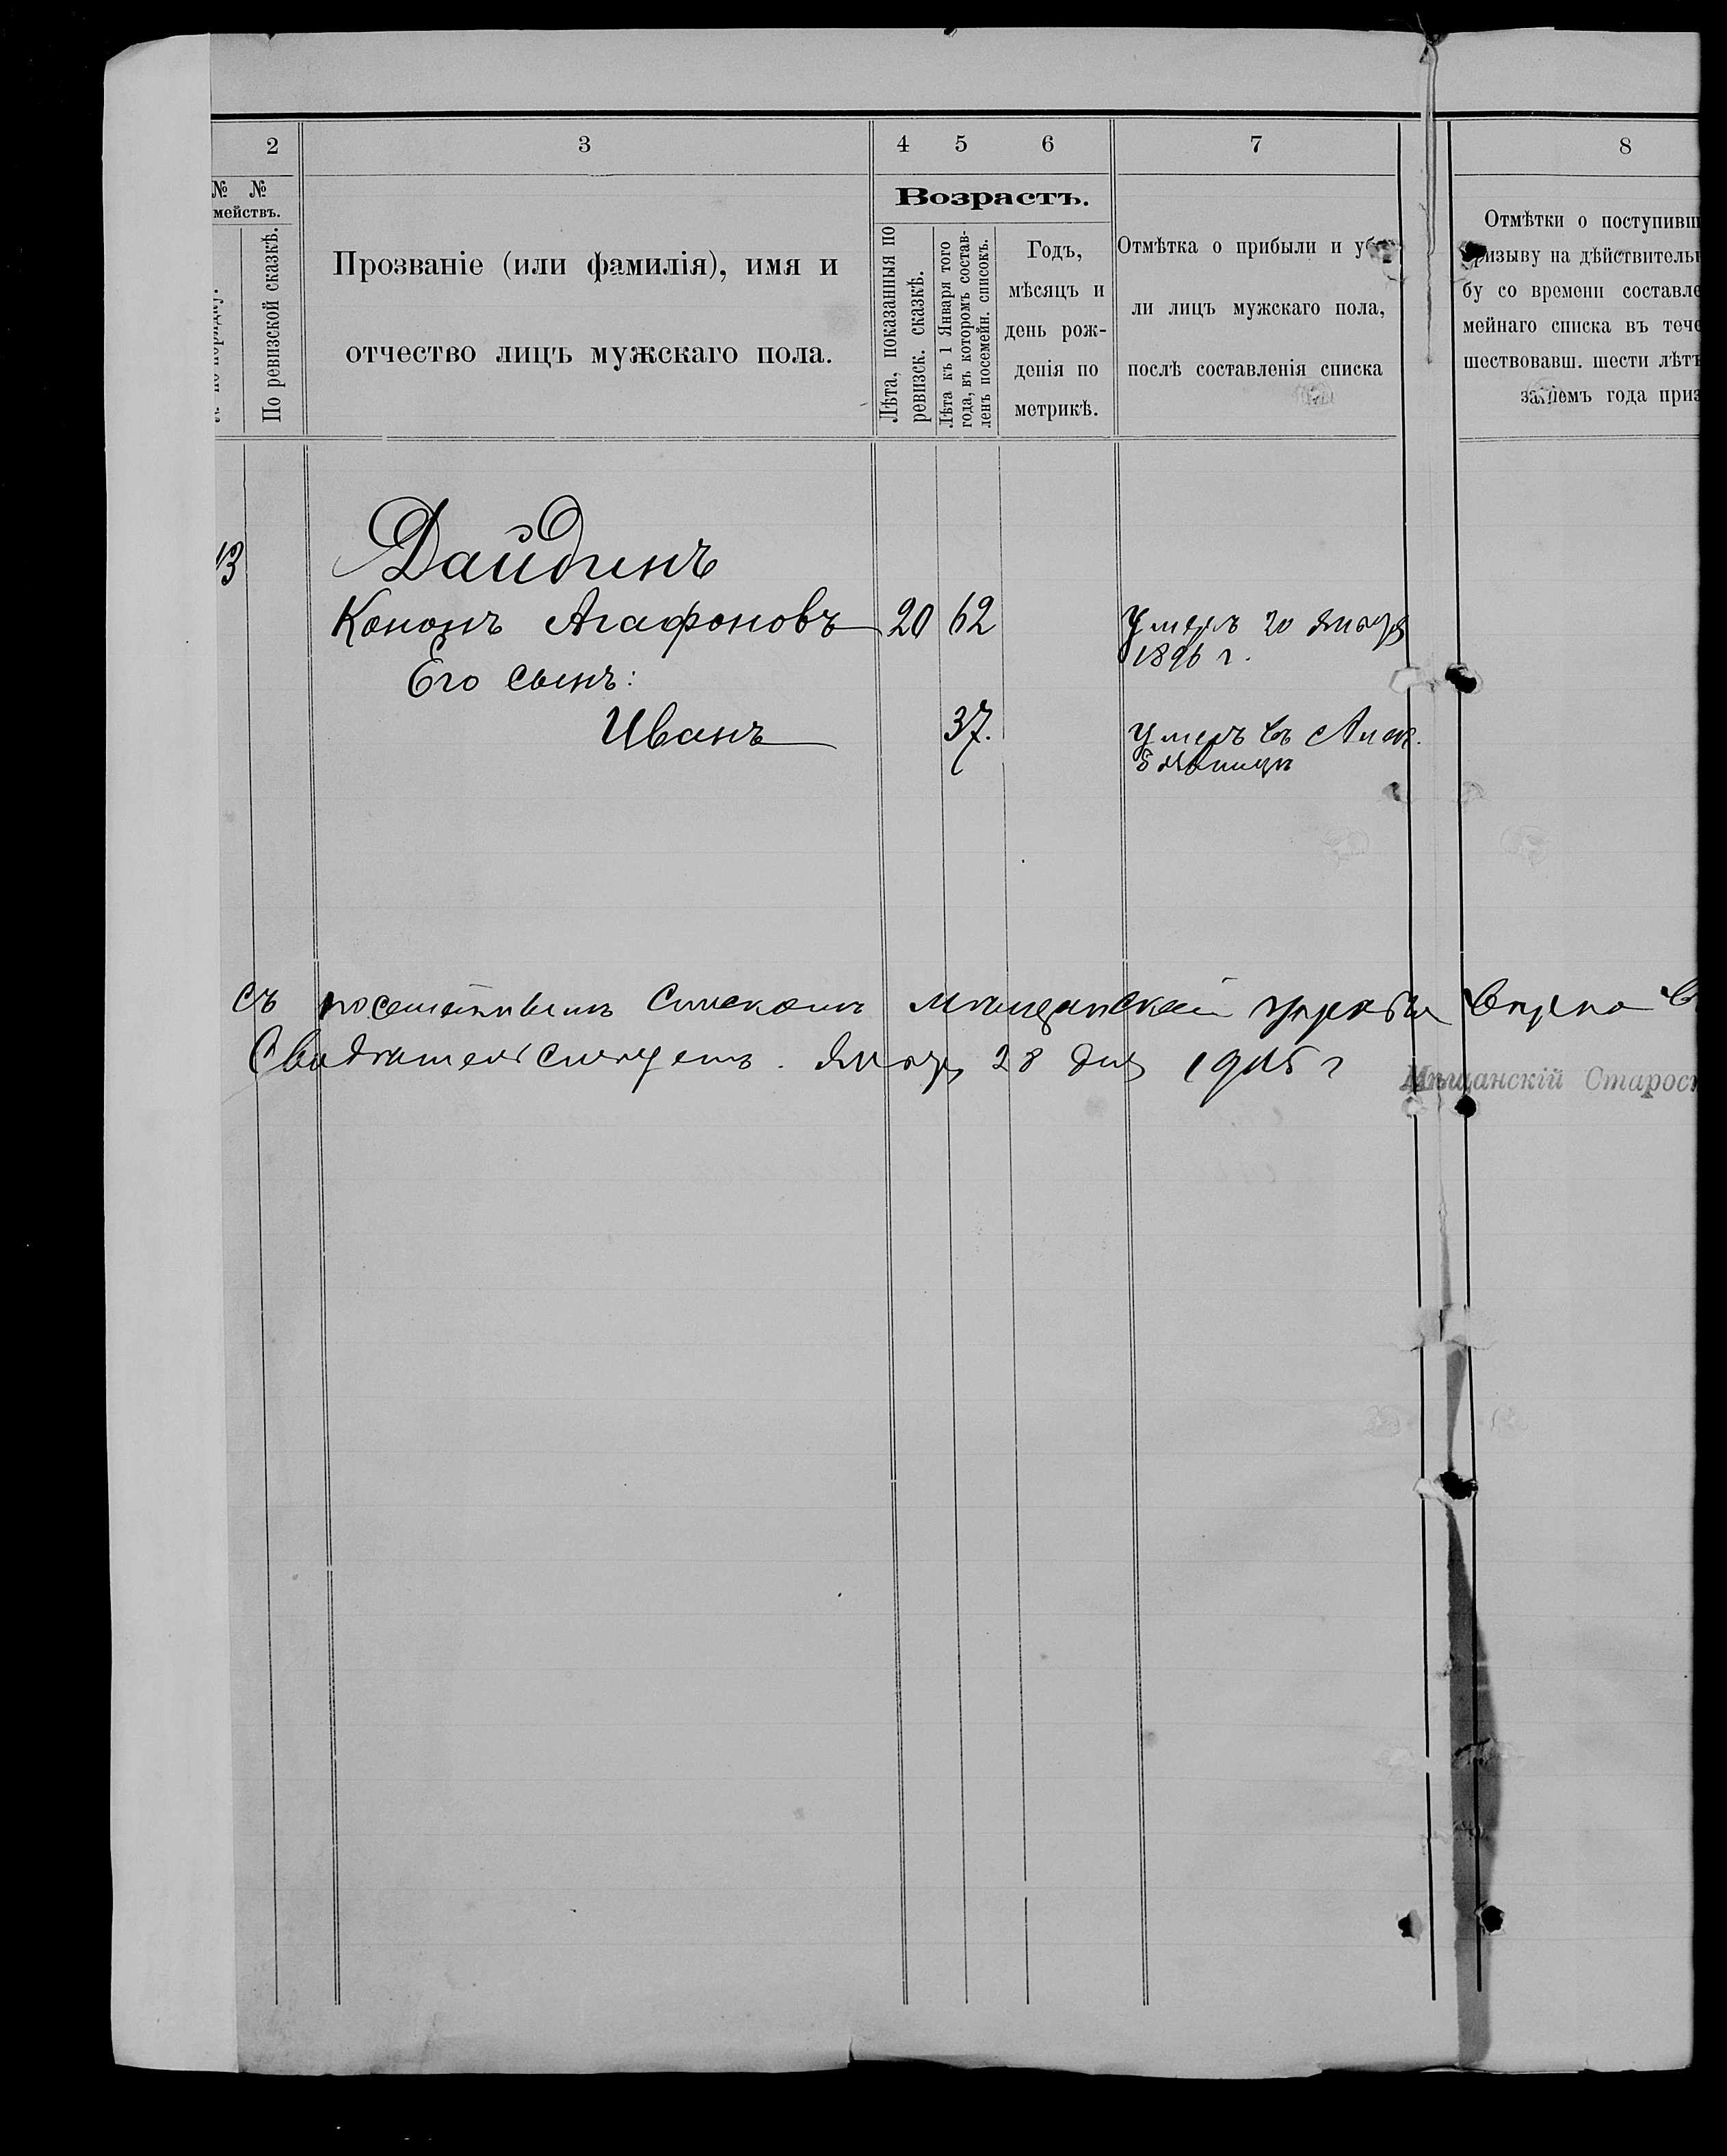 2 3 4 5 6 7 8
№ №
мействъ.
По ревизской сказкѣ.
Прозваніе (или фамилія), имя и
отчество лицъ мужскаго пола.
Возрастъ.
Лѣта, показанныя по
ревизск. сказкѣ.
Лѣта къ 1 Января того
года, въ которомъ состав-
ленъ посемейн. списокъ.
Годъ,
мѣсяцъ и
день рож-
денія по
метрикѣ.
Отмѣтка о прибыли и
ли лицъ мужскаго пола,
послѣ составленія списка
Отмѣтки о поступивш
ризыву на дѣйствительн
бу со времени составле
мейнаго списка въ тече
шествовавш. шести лѣтъ
заніемъ года приз
13 Дайдинъ
Кононъ Агафоновъ 20 62 Умеръ 20 Января
1896 г.
Его сынъ:
Иванъ 37. Умеръ въ
съ посемейнымъ спискомъ мѣщанской управы вѣрно
28 дня 1905 г
Мѣщанскій Старос